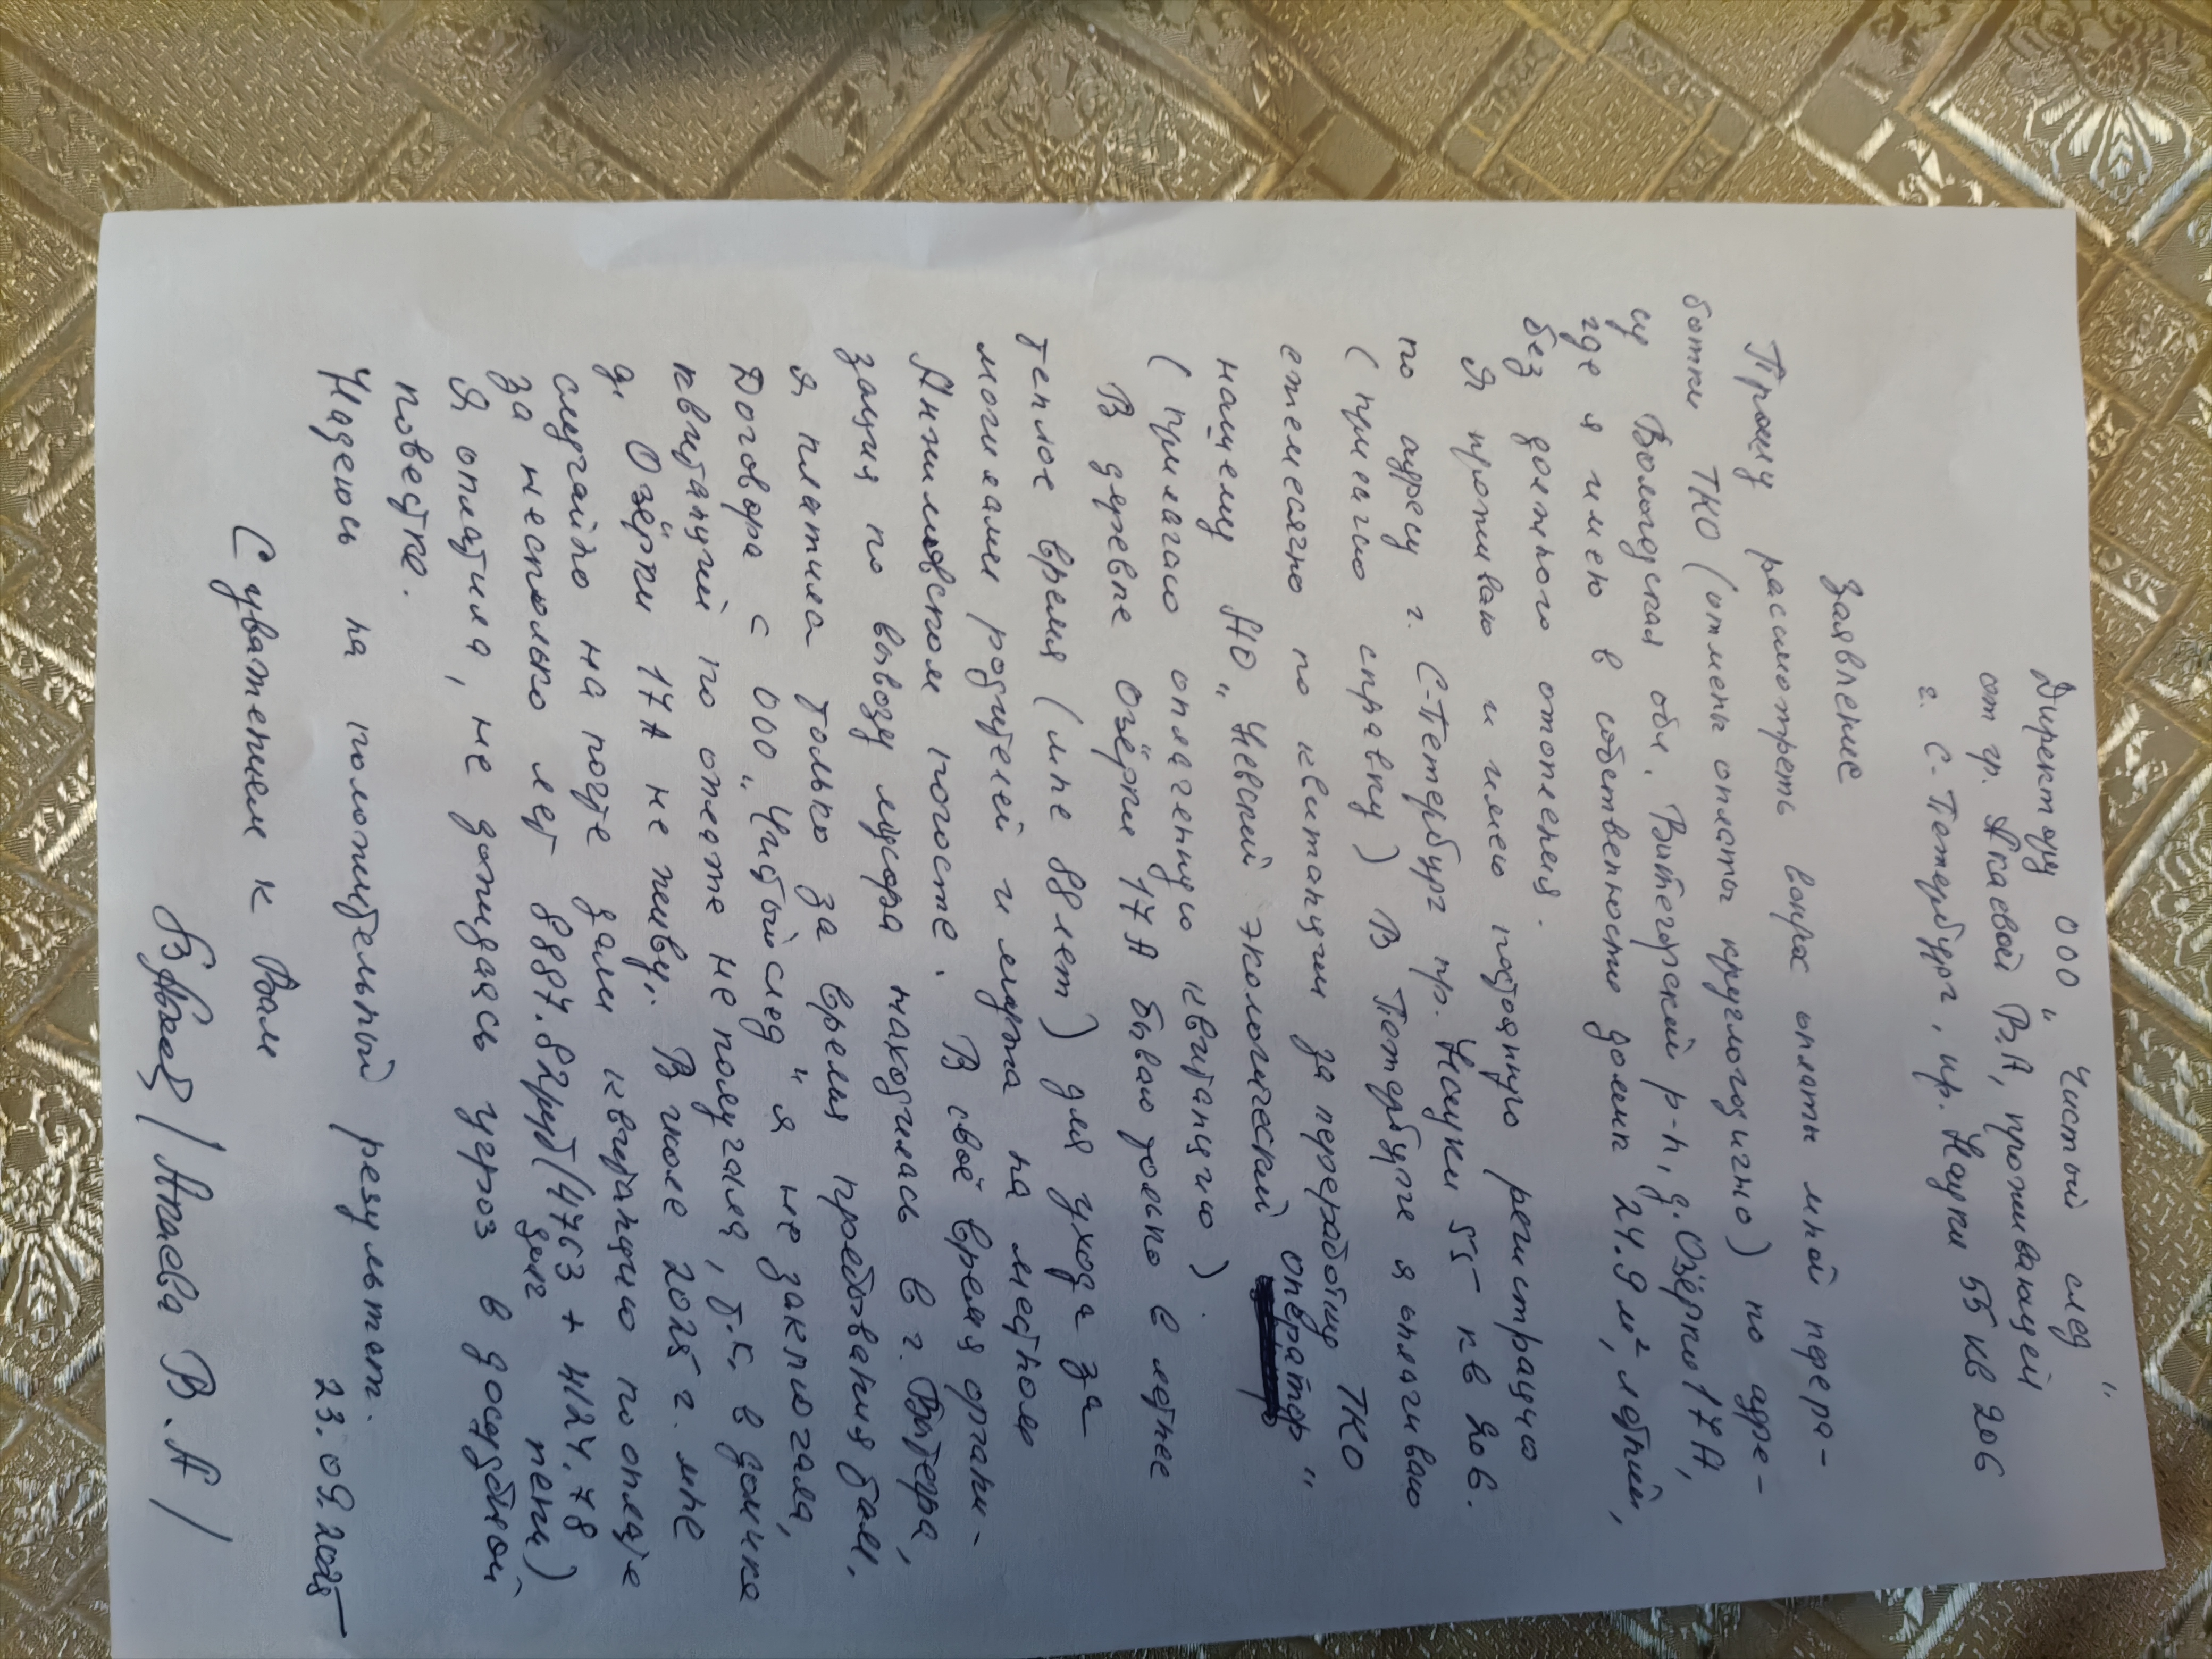 Директору ООО „Чистый след"
от гр. Акаевой В.А, проживающей
г. С-Петербург, пр. Науки 55 кв 206
Заявление
Прошу рассмотреть вопрос оплаты мной перера-
ботки ТКО (отмены оплаты круглогодично) по адре-
су Вологодская обл. Вытегорский р-н, д. Озёрки 17А,
где я имею в собственности домик 24.9 м², летний,
без должного отопления.
Я проживаю и имею постоянную регистрацию
по адресу г. С-Петербург пр. Науки 55 кв 206.
(прилагаю справку) В Петербурге я оплачиваю
ежемесячно по квитанции за переработку ТКО
нашему АО „Невский экологический оператор"
(прилагаю оплаченную квитанцию).
В деревне Озёрки 17А бываю только в летнее
теплое время (мне 88 лет) для ухода за
могилами родителей и мужа на местном
Анхимовском погосте. В своё время органи-
зация по вывозу мусора находилась в г. Вытегра,
я платила только за время пребывания там.
Договора с ООО „Чистый след" я не заключала,
квитанций по оплате не получала, т.к. в домике
д. Озёрки 17А не живу. В июле 2025 г. мне
случайно на почте дали квитанцию по оплате
за несколько лет 8887.82руб (4763 + 4124.78
долг пени)
Я оплатила, не дожидаясь угроз в досудебной
повестке.
Надеюсь на положительный результат.
23.09.2025
С уважением к Вам
/Акаева В.А/